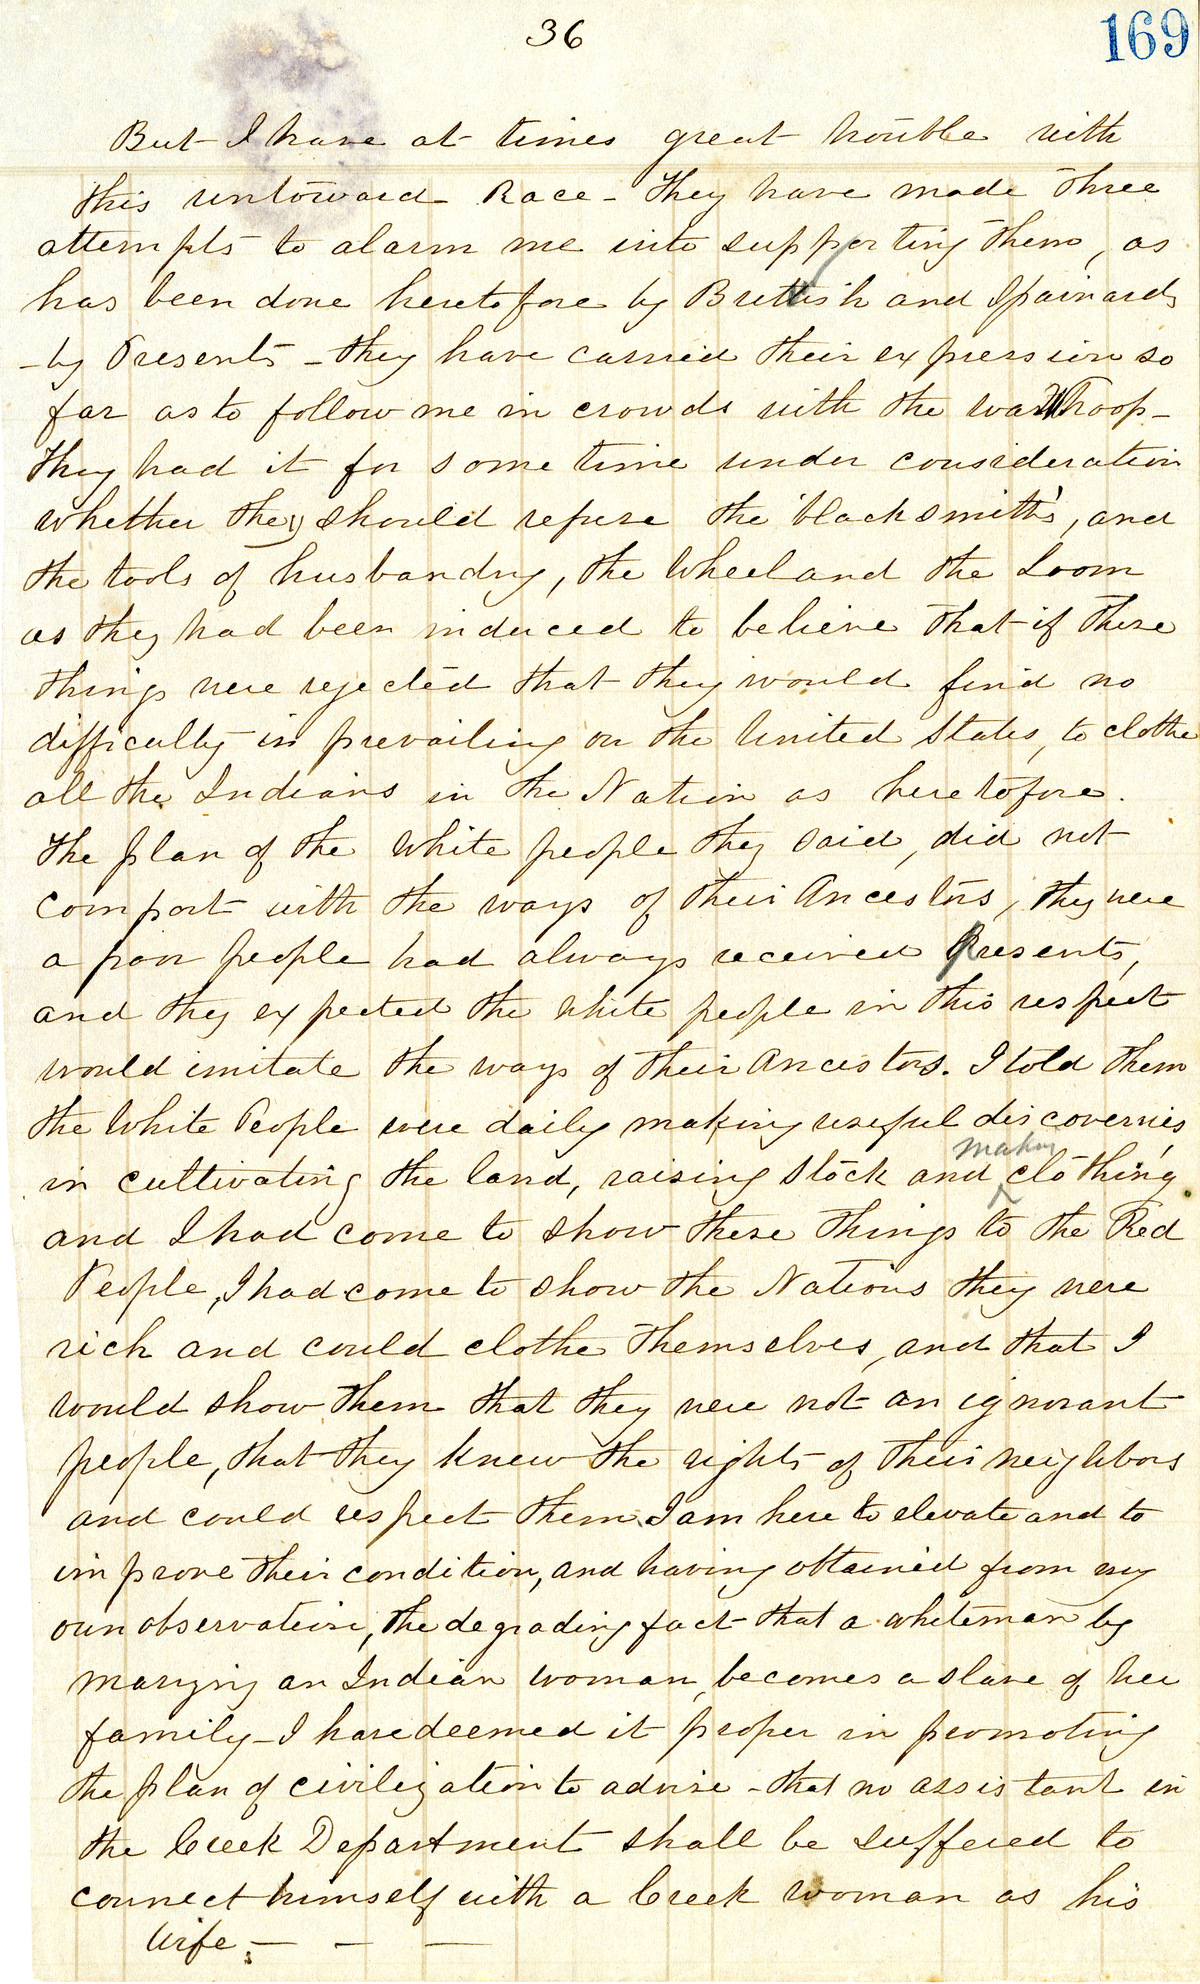 36
169
But I have at times great trouble with
this untoward Race - They have made Three
attempts to alarm me into supporting them, as
has been done heretofore by British and Spainards
- by Presents - they have carried their expression so
far as to follow me in crowds with the war Whoop -
They had it for some time under consideration
whether they should refuse the blacksmith's, and
the tools of husbandry, the Wheel and the Loom
as they had been induced to believe that if these
things were rejected that they would find no
difficulty in prevailing on the United States, to clothe
all the Indians in the Nation as heretofore.
The plan of the White people they said, did not
comport with the ways of their Ancestors, they were
a poor people had always received Presents,
and they expected the White people in this respect
would imitate the ways of their Ancestors. I told them
the White People were daily making useful discoveries,
making
in cultivating the land, raising stock and ^ clothing
and I had come to show these things to the Red
People, I had come to show the Nations they were
rich and could clothe themselves, and that I
would show them that they were not an ignorant
people, that they knew the rights of their neighbors
and could respect them. I am here to elevate and to
improve their condition, and having obtained from my
own observation, the degrading fact - that a whiteman by
marrying an Indian woman, becomes a slave of her
family - I have deemed it proper in promoting
the plan of civilization to advise - that no assistant in
the Creek Department shall be suffered to
connect himself with a Creek woman as his
Wife. - - -